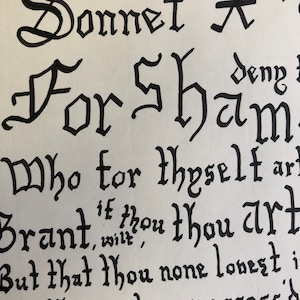 Sonnet X
For Sham
deny
Who for thyself art
Grant, if thou wilt, thou art
But that thou none lovest i